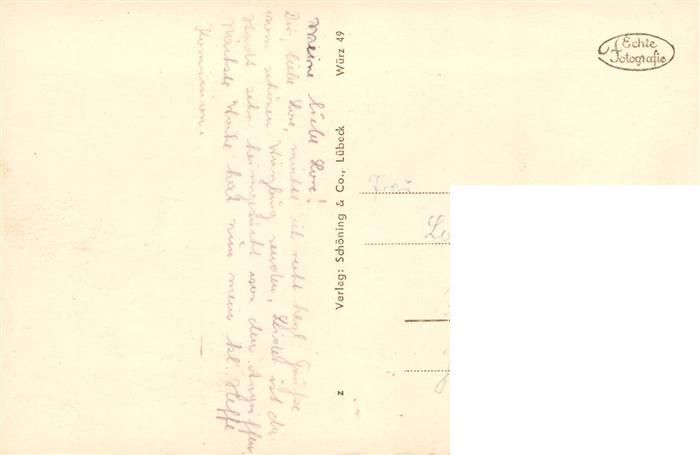 Meine liebe Lore!
Dir, liebe Lore, möchte ich recht herzl. Grüße
vom schönen Würzburg senden. Leider ist die
Stadt sehr heimgesucht von den Angriffen
Nächste Woche hat nun mein kl. Neffe
Kommunion.
Verlag: Schöning & Co., Lübeck Würz 49
z
Echte
Fotografie
Frau